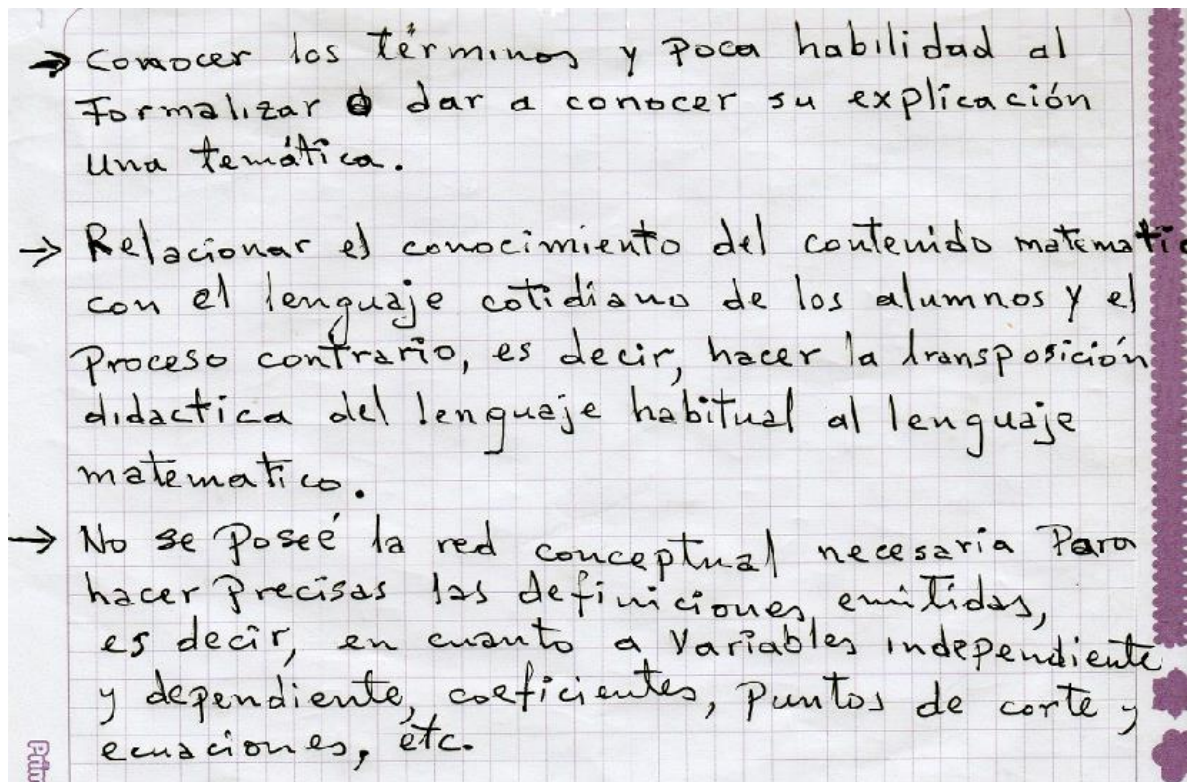 → Conocer los términos y poca habilidad al
Formalizar o dar a conocer su explicación
una temática.
→ Relacionar el conocimiento del contenido matematic
con el lenguaje cotidiano de los alumnos y el
Proceso contrario, es decir, hacer la transposición
didactica del lenguaje habitual al lenguaje
matematico.
→ No se Poseé la red conceptual necesaria Para
hacer Precisas las definiciones emitidas,
es decir, en cuanto a Variables independiente
y dependiente, coeficientes, Puntos de corte y
ecuaciones, etc.